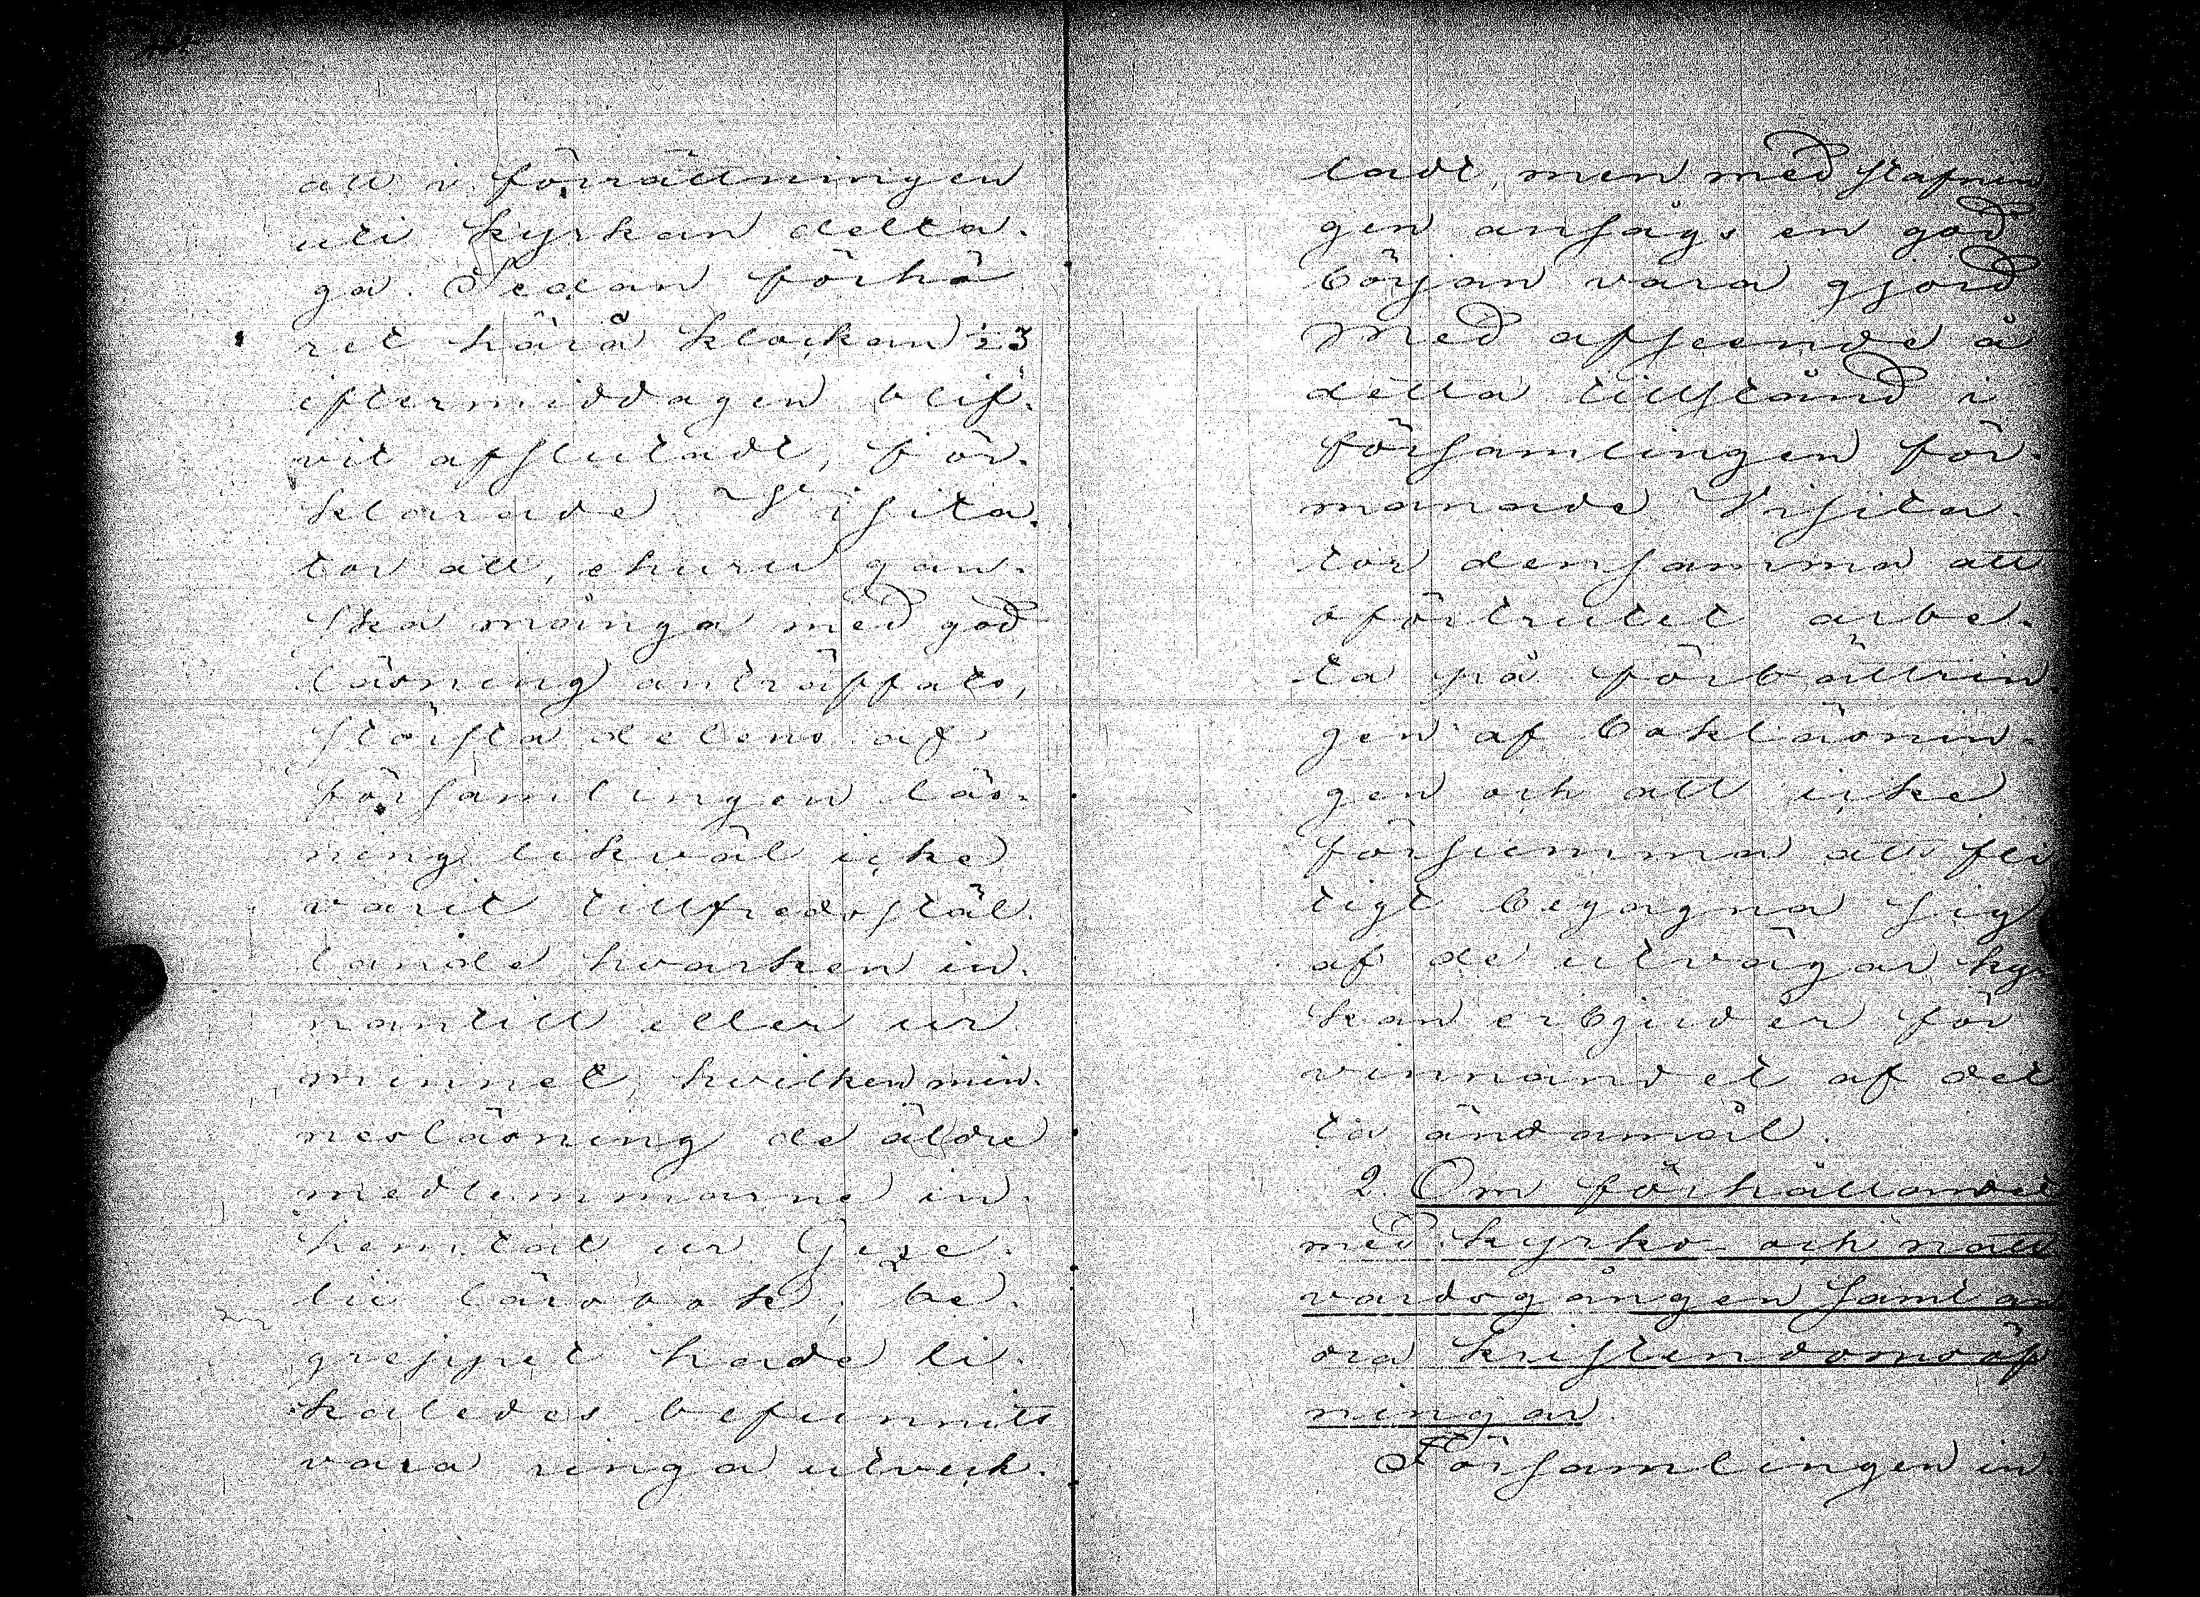 att i förrättningen
uti kyrkan delta-
ga. Sedan förhö
ret härå klockan ½3
eftermiddagen blif-
vit afslutadt, för-
klarade Visita-
tor att, ehuru gan-
ska många med god
läsning anträffats,
största delens af
församlingen läs-
ning likväl icke
varit tillfredsstäl-
lande hvarken in-
nantill eller ur
minnet, hvilken min-
nesläsning de äldre
medlemmarne in-
hemtat ur Geze-
lii lärobok; be-
greppet hade li-
kaledes befunnits
vara ringa utveck-
ladt, men med stafnin
gen ansågs en god
början vara gjord
Med afseende å
detta tillstånd i
församlingen för-
manade Visita-
tor densamma att
oförtrutet arbe-
ta på förbättrin
gen af bokläsnin-
gen och att icke
försumma att fli
tigt begagna sig
af de utvägar kyr
kan erbjuder för
vinnandet af det
ta ändamål.
2. Om förhållandet
med kyrko- och natt
vardsgången samt an
dra kristendomsöf
ningar.
Församlingen in